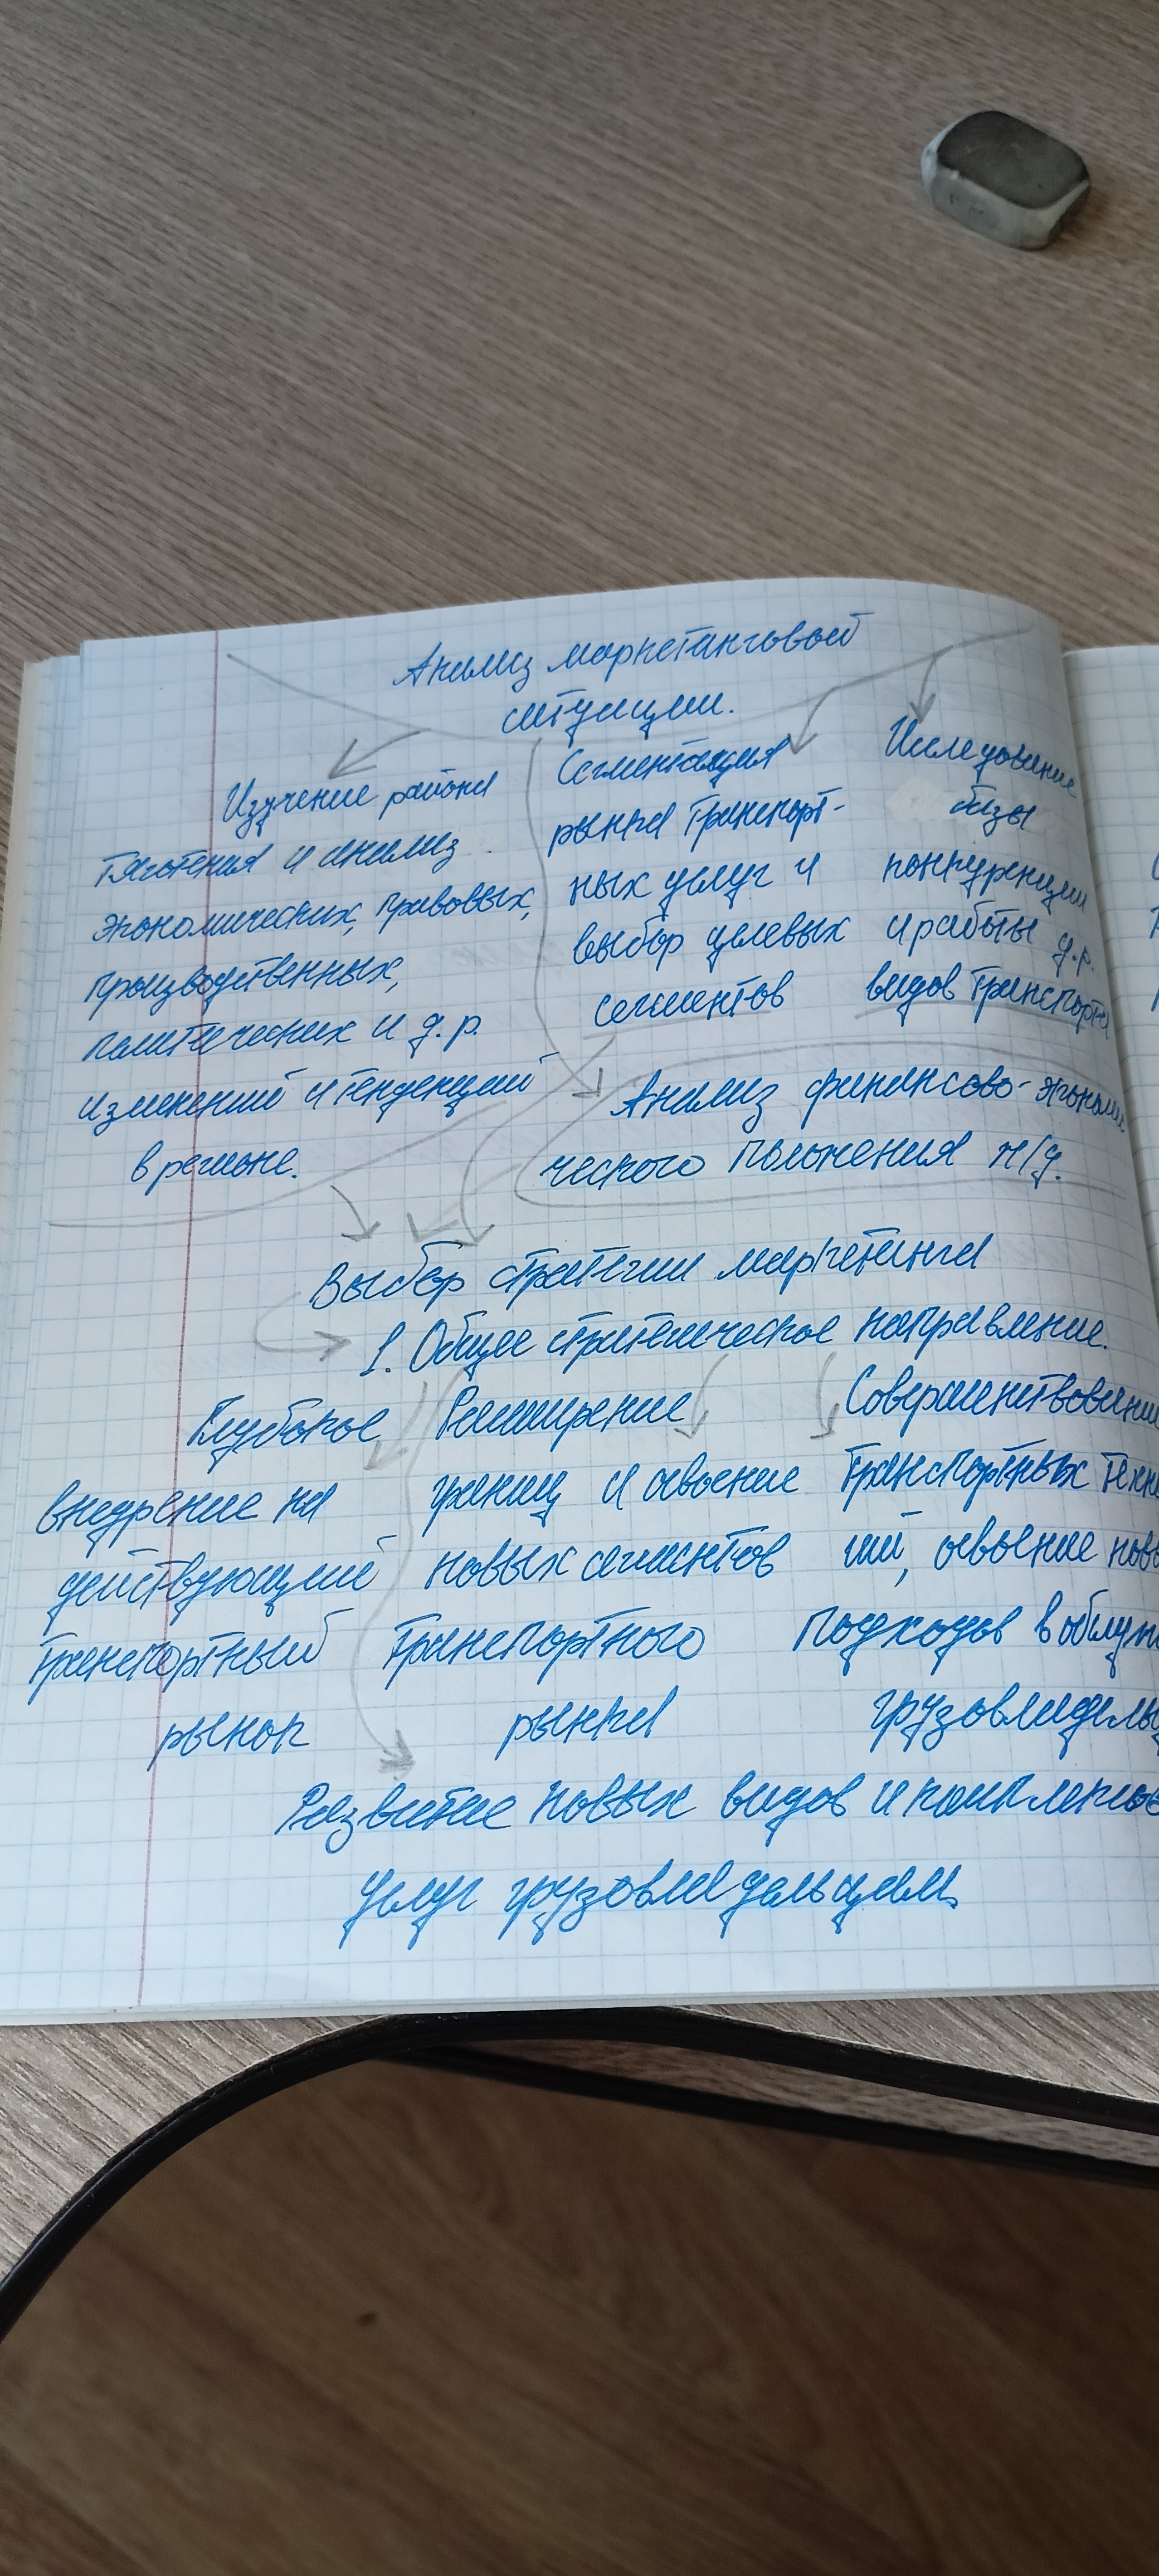 Анализ маркетинговой
ситуации.
Изучение района
тяготения и анализ
экономических, правовых,
производственных,
политических и д.р.
изменений и тенденций
в регионе.
Сегментация
рынка транспорт-
ных услуг и
выбор целевых
сегментов
Исследование
базы
конкуренции
и работы д.р.
видов транспорта
Анализ финансово-экономи
ческого положения ж/д.
Выбор стратегии маркетинга
1. Общее стратегическое направление.
Глубокое
внедрение на
действующий
транспортный
рынок
Расширение
границ и освоение
новых сегментов
транспортного
рынка
Совершенствование
транспортных техно
гий, освоение новы
подходов в обслуж
грузовладельц
Развитие новых видов и комплексов
услуг грузовладельцам